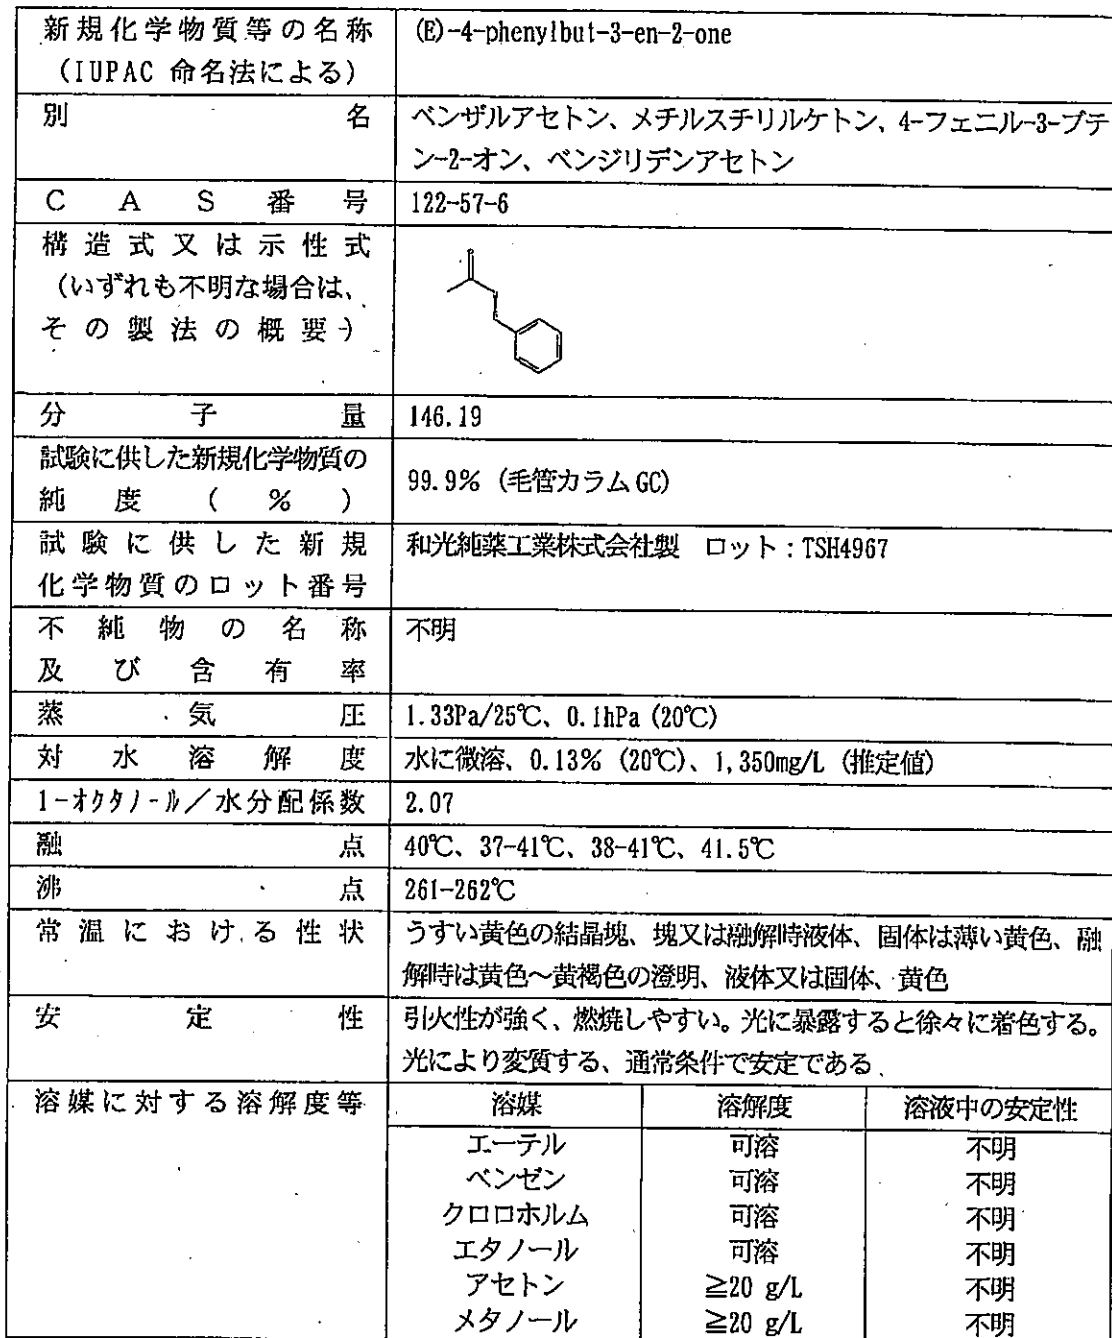 新規化学物質等の名称
(IUPAC 命名法による)
(E)-4-phenylbut-3-en-2-one
別名
ベンザルアセトン、メチルスチリルケトン、4-フェニル-3-ブテ
ン-2-オン、ベンジリデンアセトン
CAS番号
122-57-6
構造式又は示性式
(いずれも不明な場合は、
その製法の概要)
分子量
146.19
試験に供した新規化学物質の
純度(%)
99.9% (毛管カラム GC)
試験に供した新規
化学物質のロット番号
和光純薬工業株式会社製 ロット:TSH4967
不純物の名称
及び含有率
不明
蒸気圧
1.33Pa/25℃、0.1hPa (20℃)
対水溶解度
水に微溶、0.13% (20℃)、1,350mg/L (推定値)
1-オクタノール/水分配係数
2.07
融点
40℃、37-41℃、38-41℃、41.5℃
沸点
261-262℃
常温における性状
うすい黄色の結晶塊、塊又は融解時液体、固体は薄い黄色、融
解時は黄色~黄褐色の澄明、液体又は固体、黄色
安定性
引火性が強く、燃焼しやすい。光に暴露すると徐々に着色する。
光により変質する、通常条件で安定である
溶媒に対する溶解度等
溶媒 溶解度 溶液中の安定性
エーテル 可溶 不明
ベンゼン 可溶 不明
クロロホルム 可溶 不明
エタノール 可溶 不明
アセトン ≧20 g/L 不明
メタノール ≧20 g/L 不明